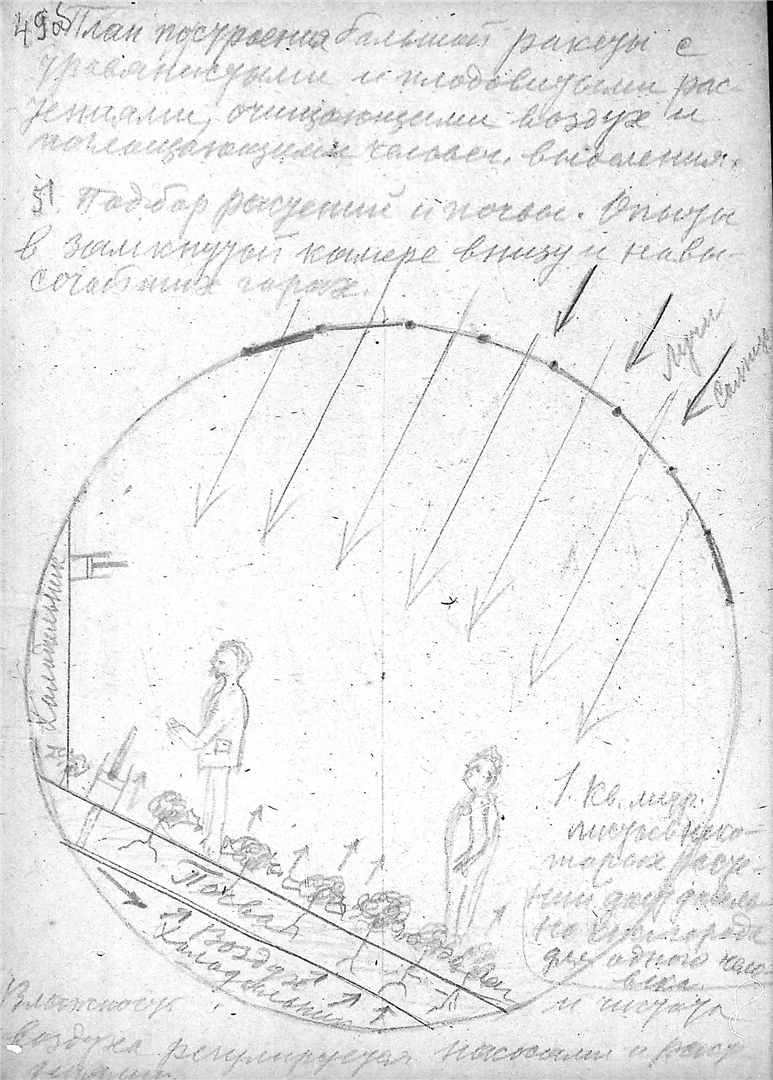 49 План построения большой ракеты с
травянистыми и плодовитыми рас-
тениями, очищающими воздух и
поглощающими человеч. выделения.
51. Подбор растений и почвы. Опыты
в замкнутой камере внизу и на вы-
сочайших горах.
Лучи
Солнца
Холодильник
1. Кв. метр.
листьев неко-
торых расте-
ний дает доволь-
но кислорода
для одного чело-
века.
Почва
Воздух
Холодильник
Влажность и чистота
воздуха регулируется насосами и расте-
ниями